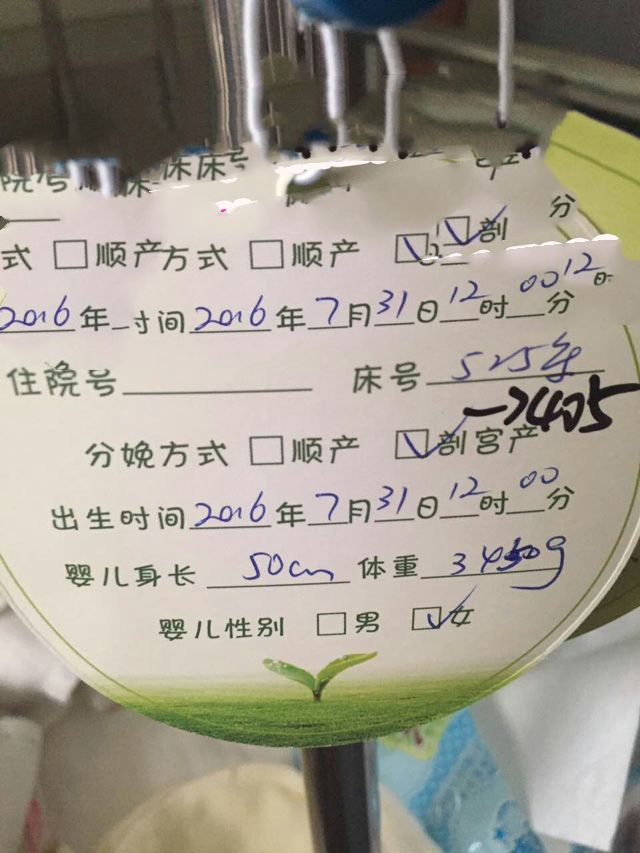 床号
式 □顺产方式 □顺产 ☑ ☑剖 分
2016年 时间 2016年 7月 31日 12时 00 分 12时
住院号 床号 525
→405
分娩方式 □顺产 ☑剖宫产
出生时间 2016年 7月 31日 12时 00分
婴儿身长 50cm 体重 3450g
婴儿性别 □男 ☑女